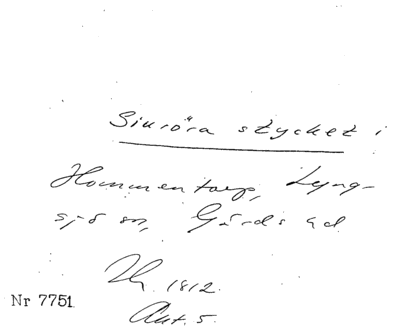 Siuröra stycket i
Hommentorp, Lyng-
sjö sn, Gärds hd.
1812.
Nr 7751
Akt. 5.